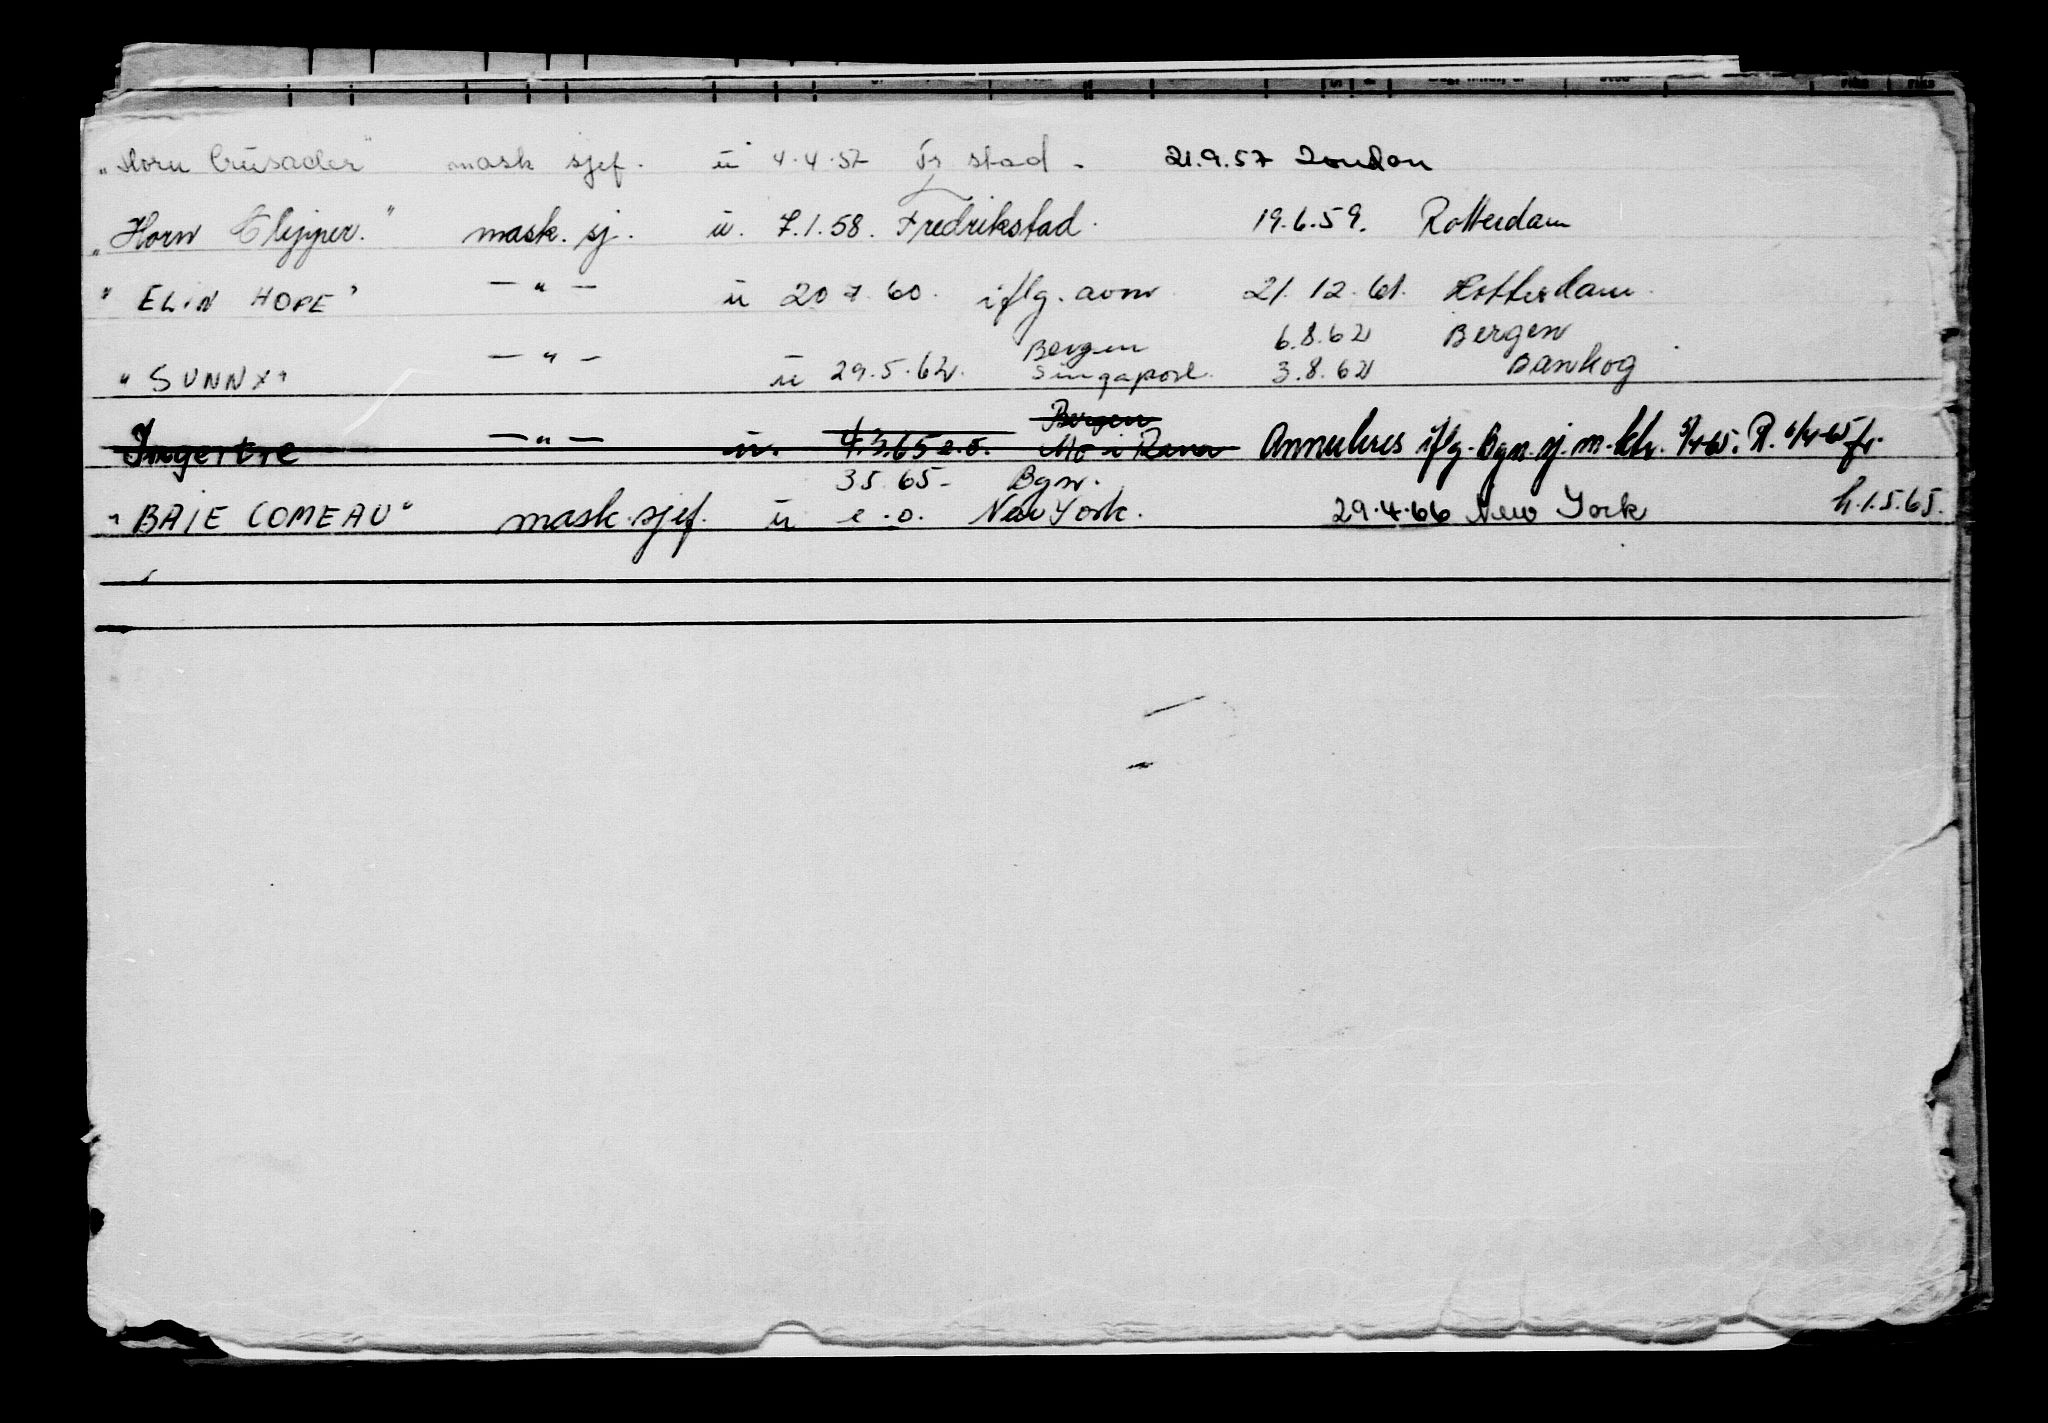 "Horn Crusader" mask sjef. ü 4.4.57 Fr stad - 21.9.57 London
"Horn Clipper." mask. sj. ü. 7.1.58. Fredrikstad. 19.6.59. Rotterdam
" ELIN HOPE" — " — ü 20 7. 60. iflg. avm. 21. 12. 61. Rotterdam.
Bergen 6.8.62 Bergen
" SUNNY" — " — ü 29.5.62. Singapore. 3.8.62 Bankog
Bergen
Ingertre — " — ü. 4.3.65 e.o. Mo i Rana Annuleres iflg. Bgn. sj. m. ktr. 5/4-65. R. 6/4-65 fr.
3 5. 65- Bgn.
" BAIE COMEAU" mask.sjef. ü e.o. New York. 29.4.66 New York h.1.5.65.